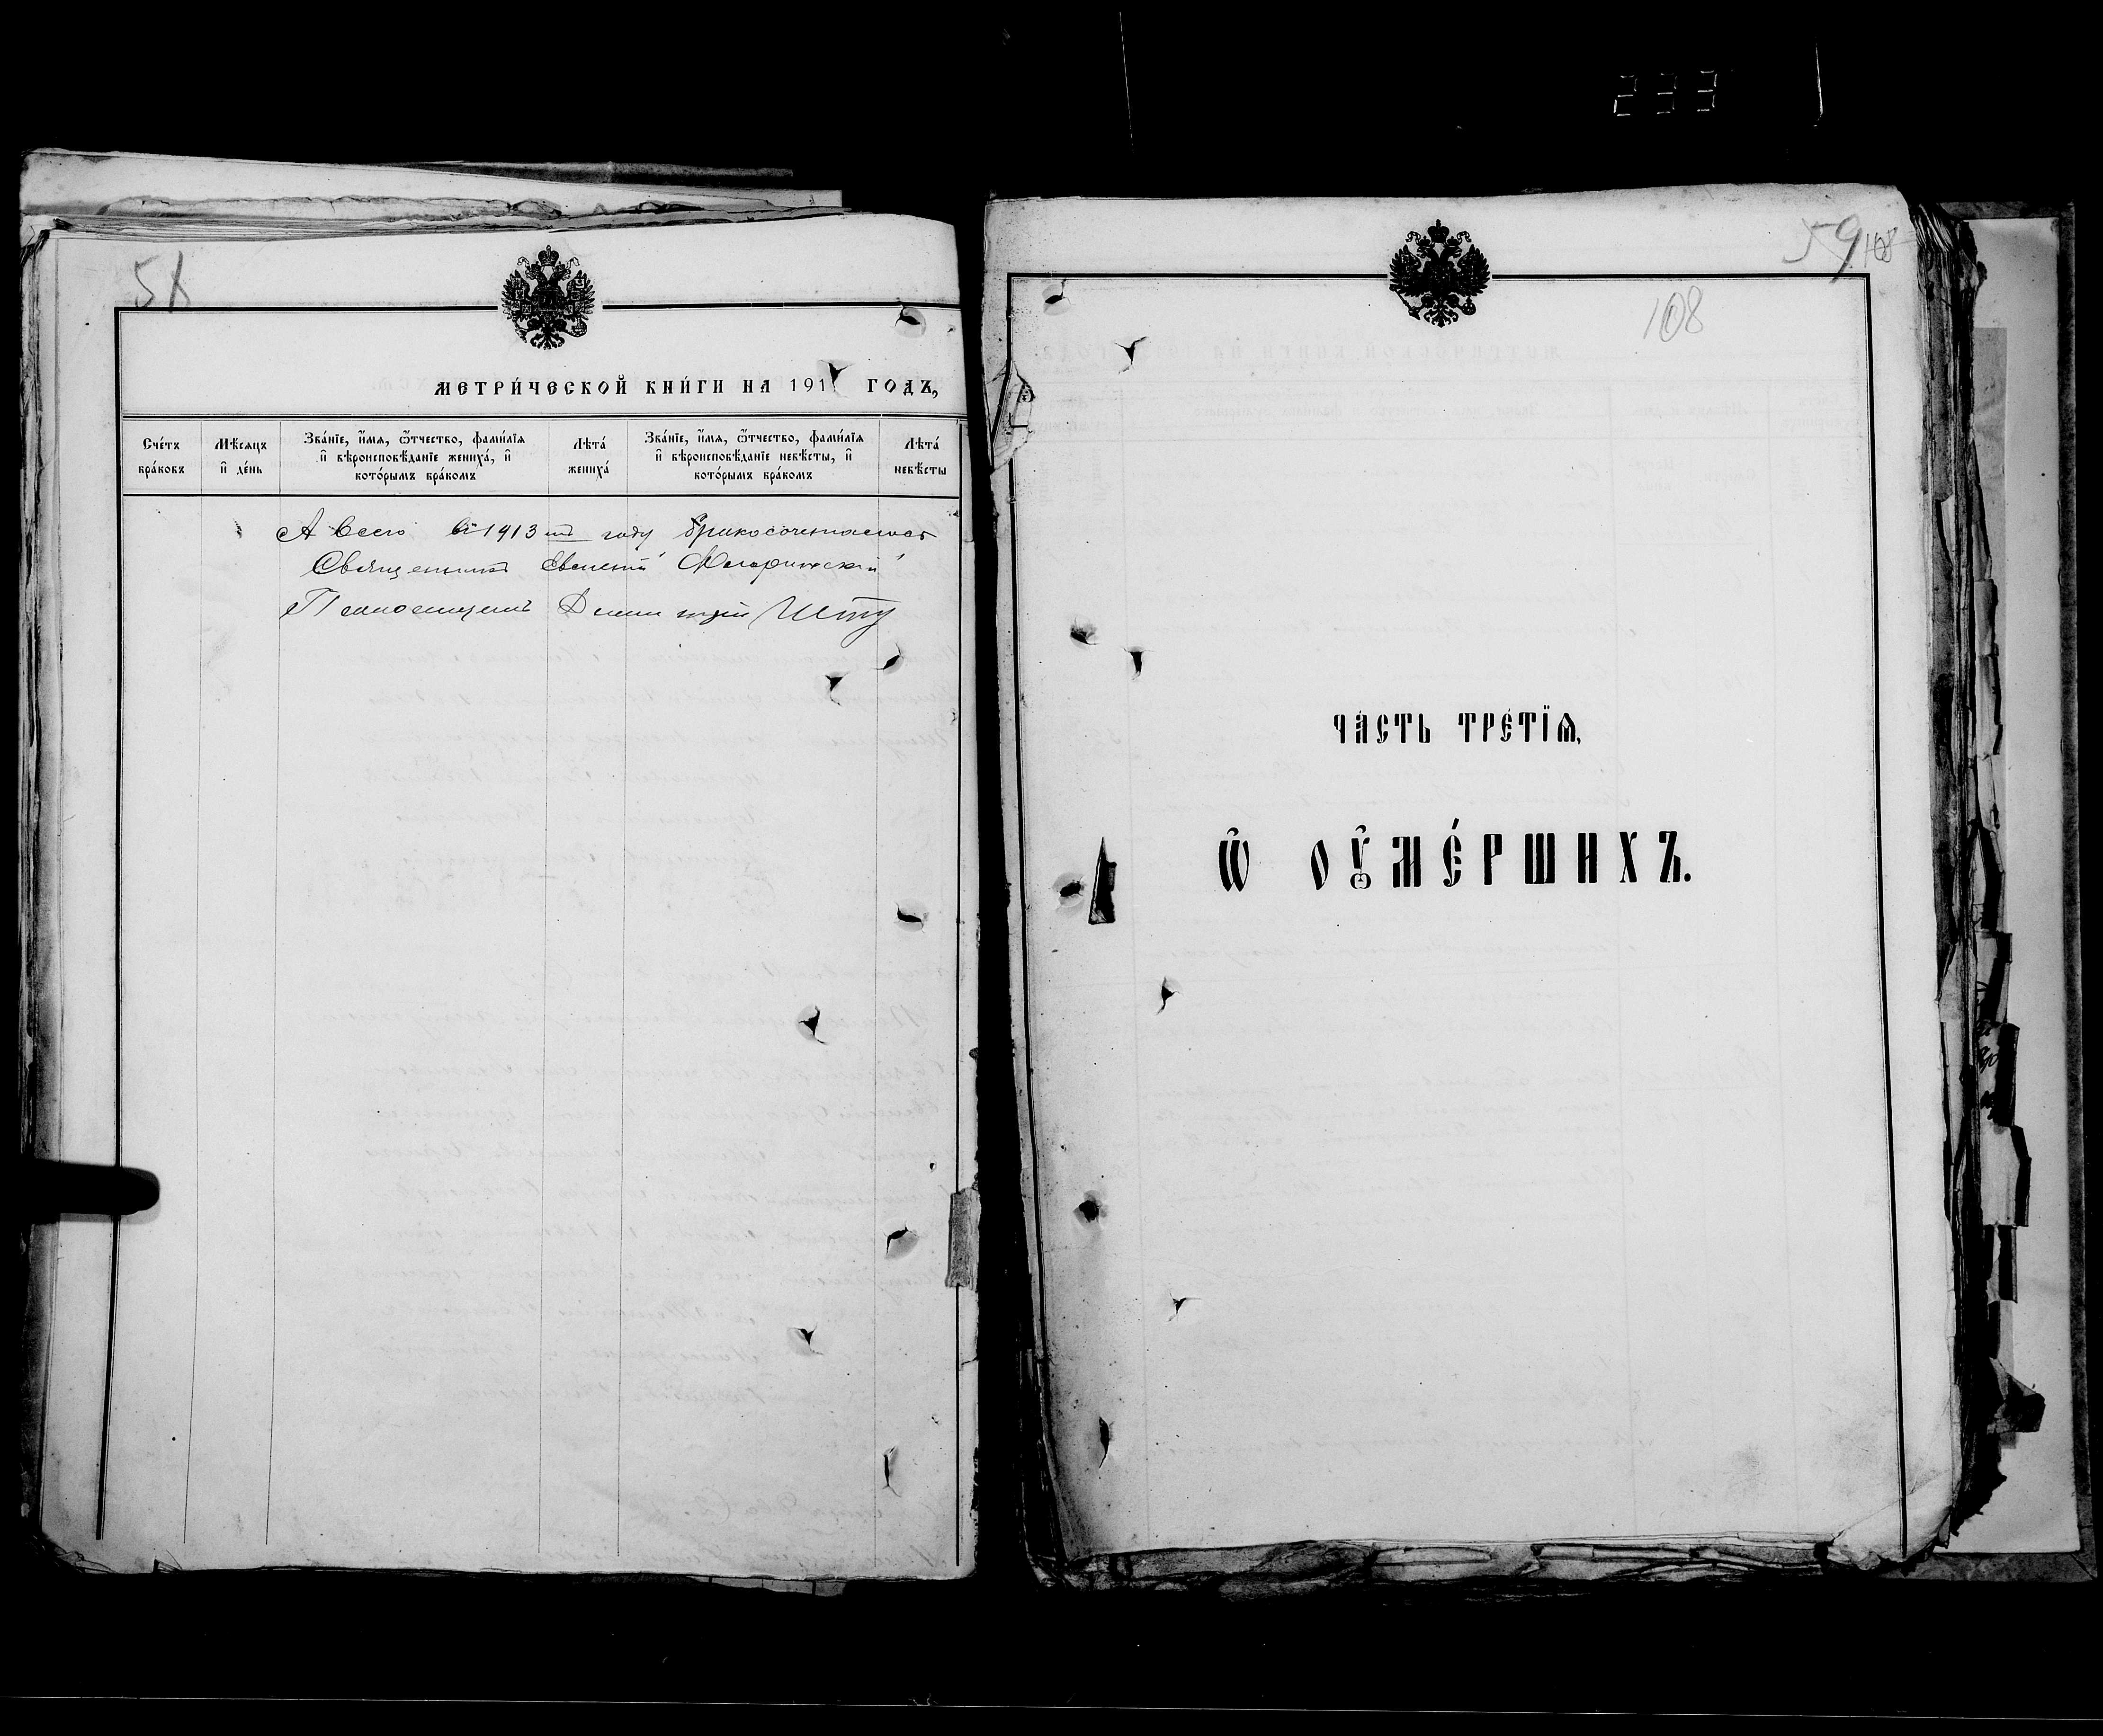 233
58
метри́ческой кни́ги на 191 годъ,
Сче́тъ бра́ковъ
Мѣ́сѧцъ и҆ де́нь
Зва́нїе, и҆́мѧ, ѻ҆́тчество, фами́лїѧ и҆ вѣроисповѣ́данїе жениха́, и҆ кото́рымъ бра́комъ
Лѣта̀ жениха́
Зва́нїе, и҆́мѧ, ѻ҆́тчество, фами́лїѧ и҆ вѣроисповѣ́данїе невѣ́сты, и҆ кото́рымъ бра́комъ
Лѣта̀ невѣ́сты
А всего въ 1913 году
Священникъ Евгений
Псаломщикъ
59 108
108
ча́сть тре́тїѧ,
ѡ҆ оу҆ме́ршихъ.